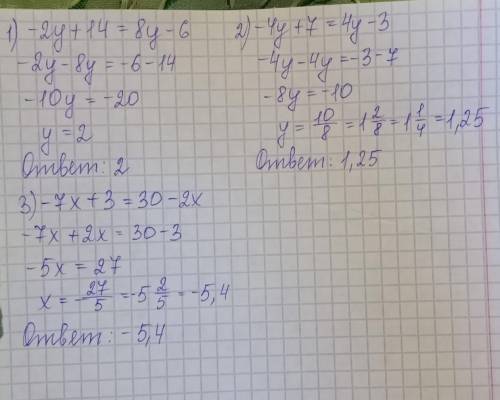 1) -2y + 14 = 8y - 6
-2y - 8y = -6 - 14
-10y = -20
y = 2
Ответ: 2
2) -4y + 7 = 4y - 3
-4y - 4y = -3 - 7
-8y = -10
y = 10/8 = 1 2/8 = 1 1/4 = 1,25
Ответ: 1,25
3) -7x + 3 = 30 - 2x
-7x + 2x = 30 - 3
-5x = 27
x = -27/5 = -5 2/5 = -5,4
Ответ: -5,4